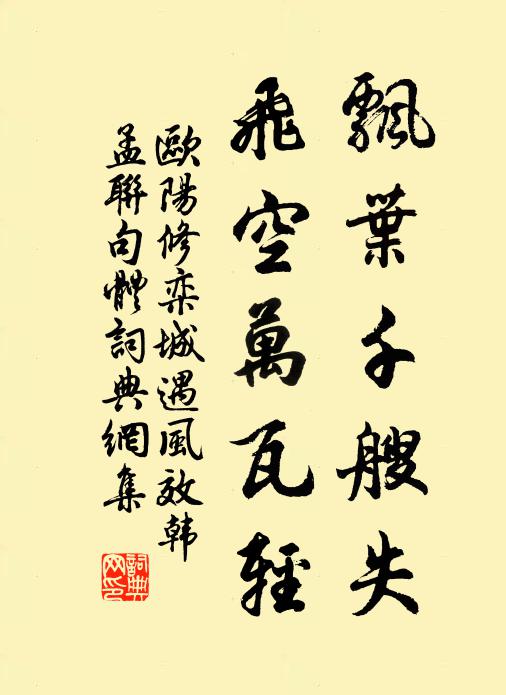 飄葉千艘失
飛空萬瓦輕
歐陽修栾城遇風效韩
孟聯句體詞典網集
詞典网印